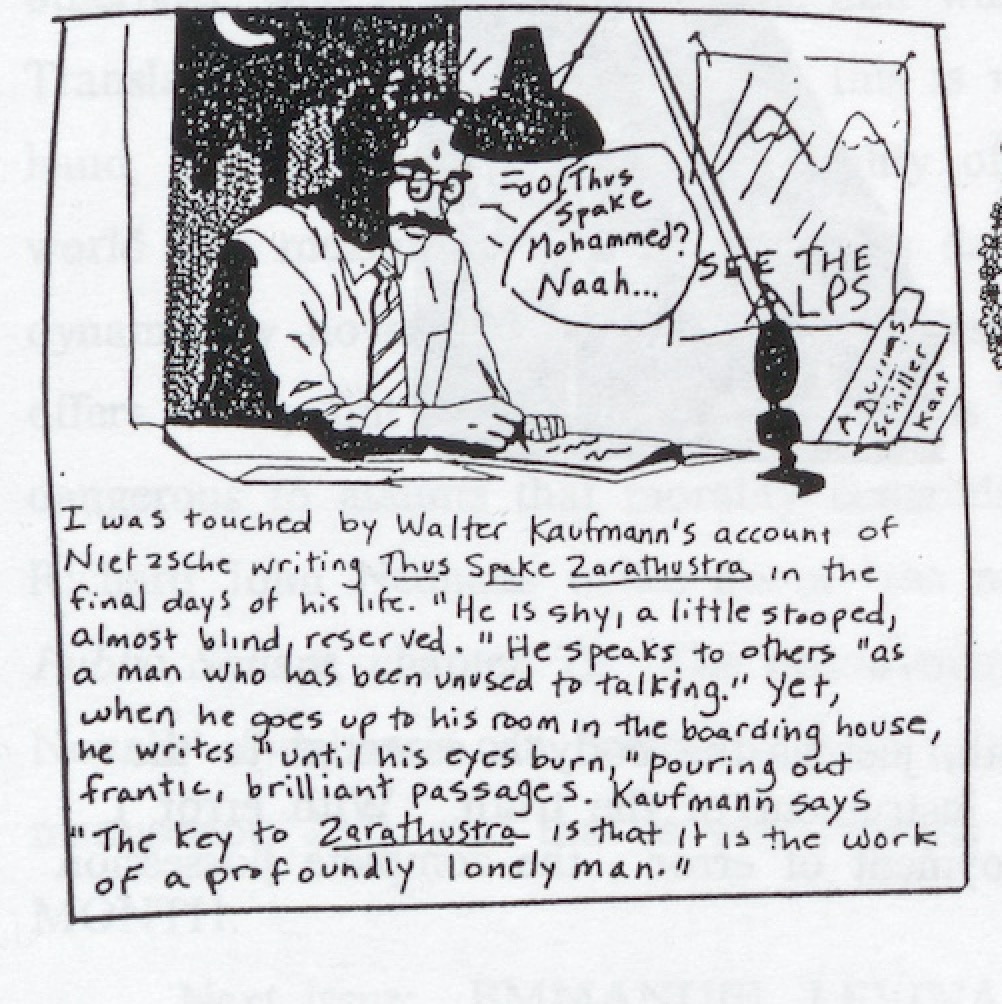 Thus
Spake
Mohammed?
Naah...
SEE THE
ALPS
Schiller
Kant
I was touched by Walter Kaufmann's account of
Nietzsche writing Thus Spake Zarathustra in the
final days of his life. "He is shy, a little stooped,
almost blind, reserved." He speaks to others "as
a man who has been unused to talking." Yet,
when he goes up to his room in the boarding house,
he writes "until his eyes burn," pouring out
frantic, brilliant passages. Kaufmann says
"The key to Zarathustra is that it is the work
of a profoundly lonely man."